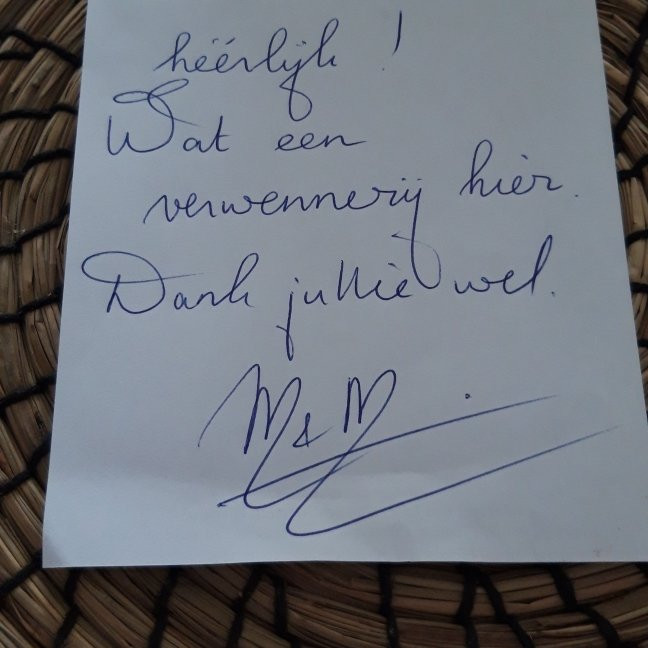 héérlijk !
Wat een
verwennerij hier.
Dank jullie wel.
M & M